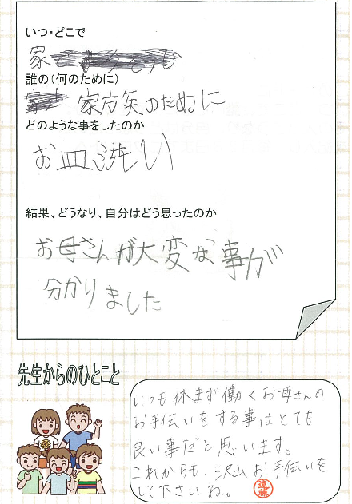 いつ・どこで
家
誰の(何のために)
家族のために
どのような事をしたのか
お皿洗い
結果、どうなり、自分はどう思ったのか
お母さんが大変な事が
分かりました
先生からのひとこと
いつも休まず働くお母さんの
お手伝いをする事はとても
良い事だと思います。
これからも、沢山お手伝いを
して下さいね。